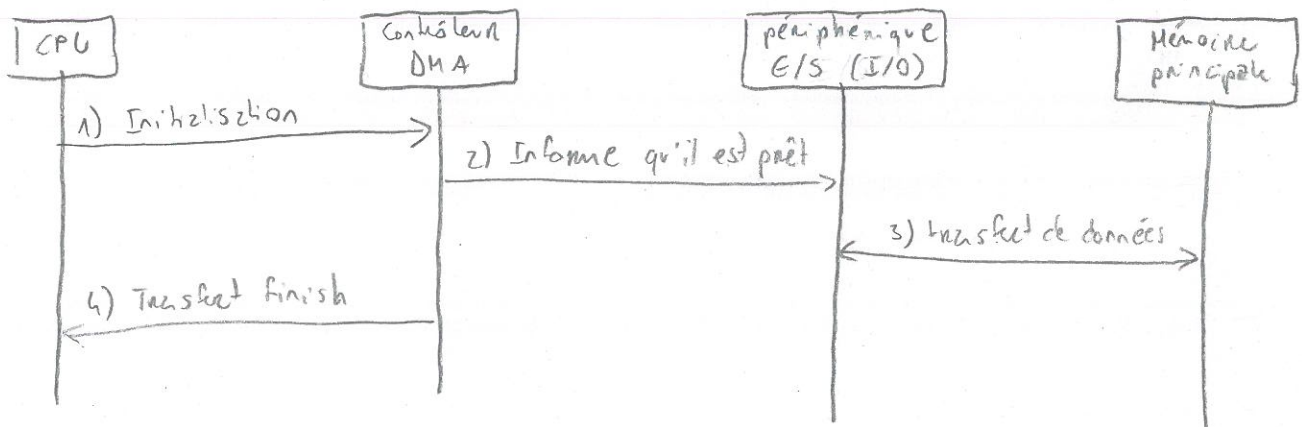 CPU
Contrôleur
DMA
périphérique
E/S (I/O)
Mémoire
principale
1) Initialisation
2) Informe qu'il est prêt
3) transfert de données
4) Transfert finish